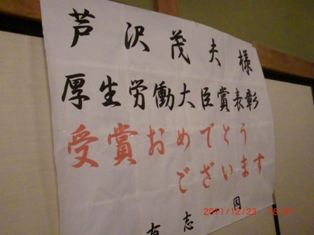 芦沢茂夫様
厚生労働大臣賞表彰
受賞おめでとう
ございます
有志
2011/12/23